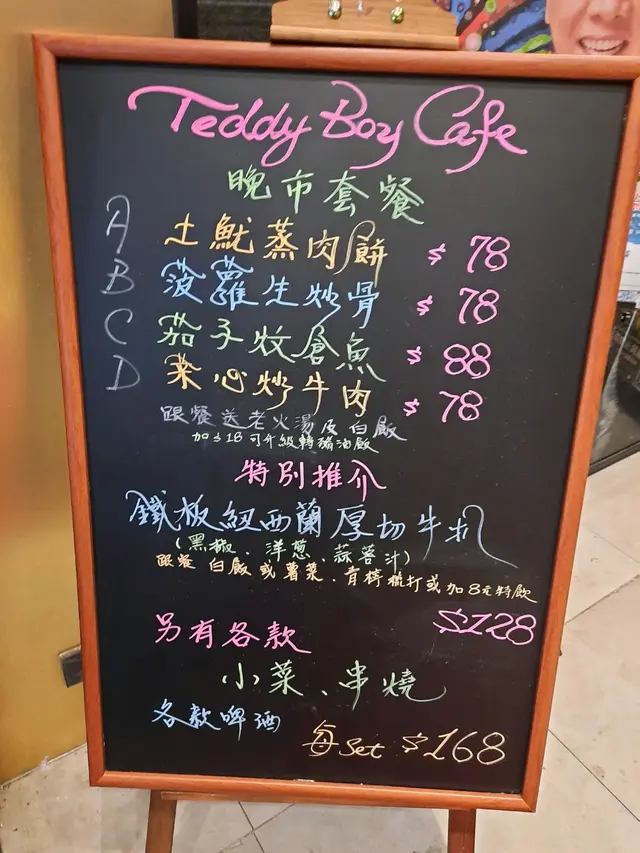 Teddy Boy Cafe
晚市套餐
A 土魷蒸肉餅 $78
B 菠蘿生炒骨 $78
C 茄子炆倉魚 $88
D 菜心炒牛肉 $78
跟餐送老火湯及白飯
加$18可升級轉豬油飯
特別推介
鐵板紐西蘭厚切牛扒
(黑椒、洋葱、蒜蓉汁)
跟餐 白飯或薯菜、青檸梳打或加8元特飲
$128
另有各款
小菜、串燒
各款啤酒
每Set $168